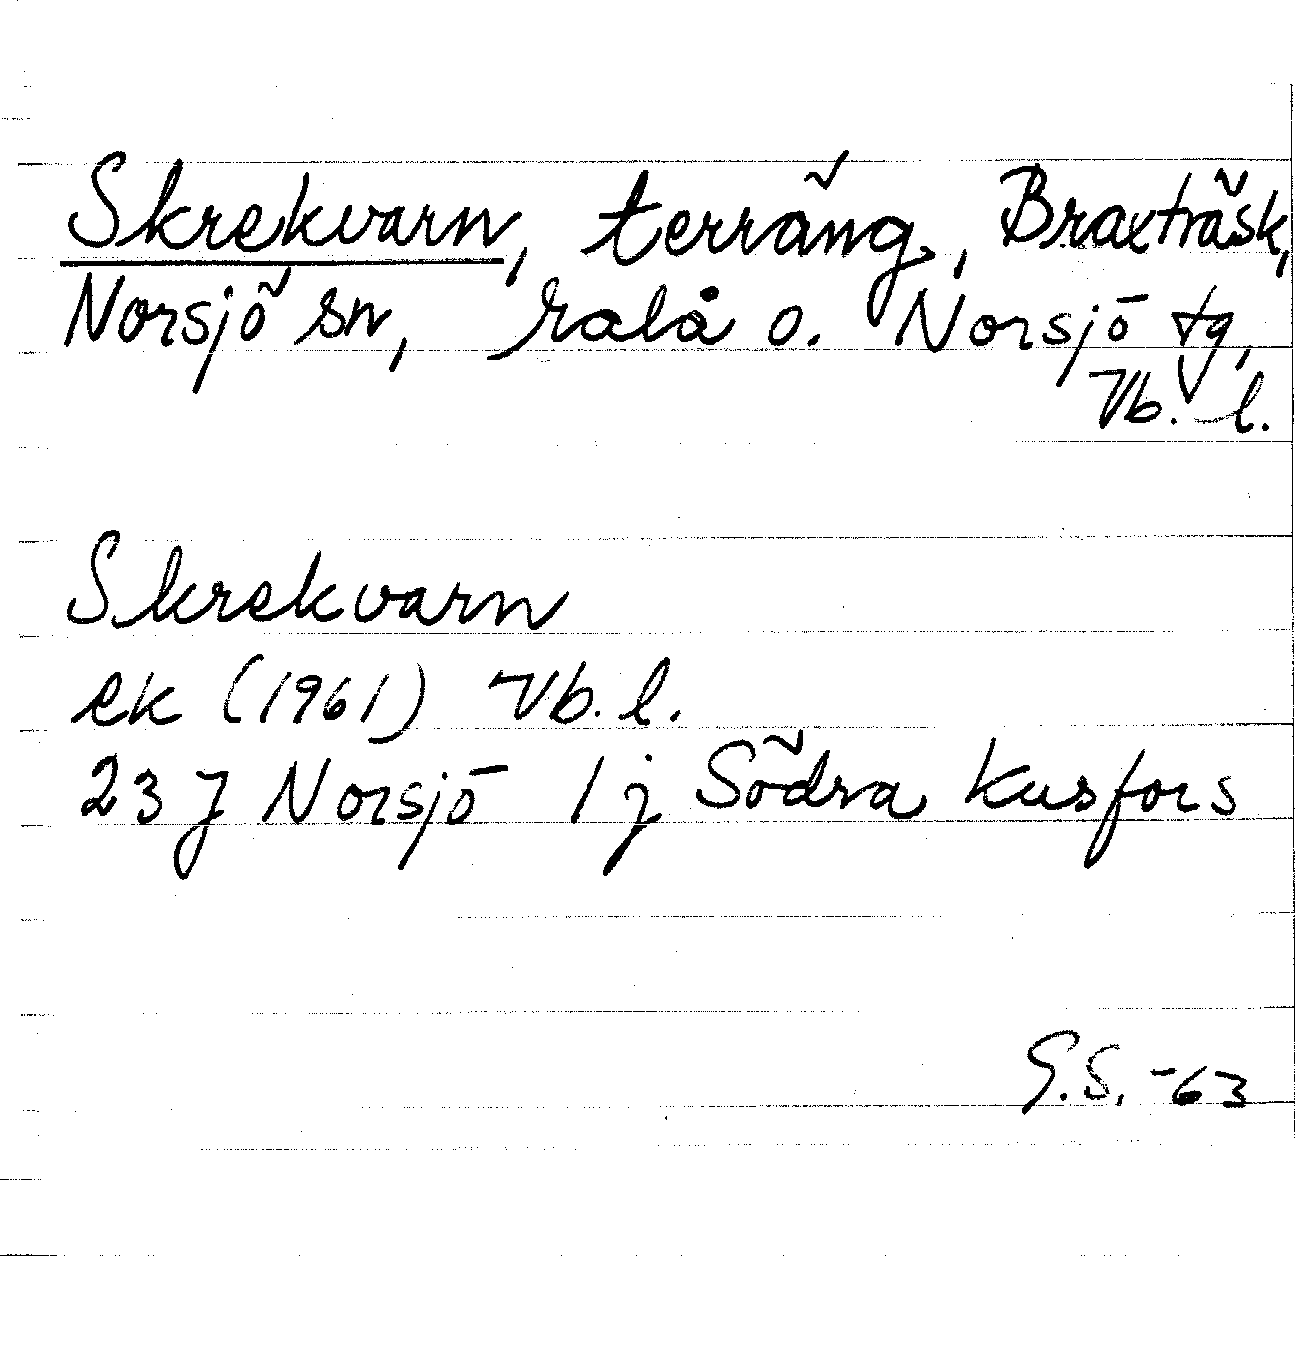 Skrekvarn, terräng, Braxträsk,
Norsjö sn, Malå o. Norsjö tg,
Vb. l.
Skrekvarn
ek (1961) Vb. l.
23 J Norsjö 1 j Södra Kusfors
G.S. -63